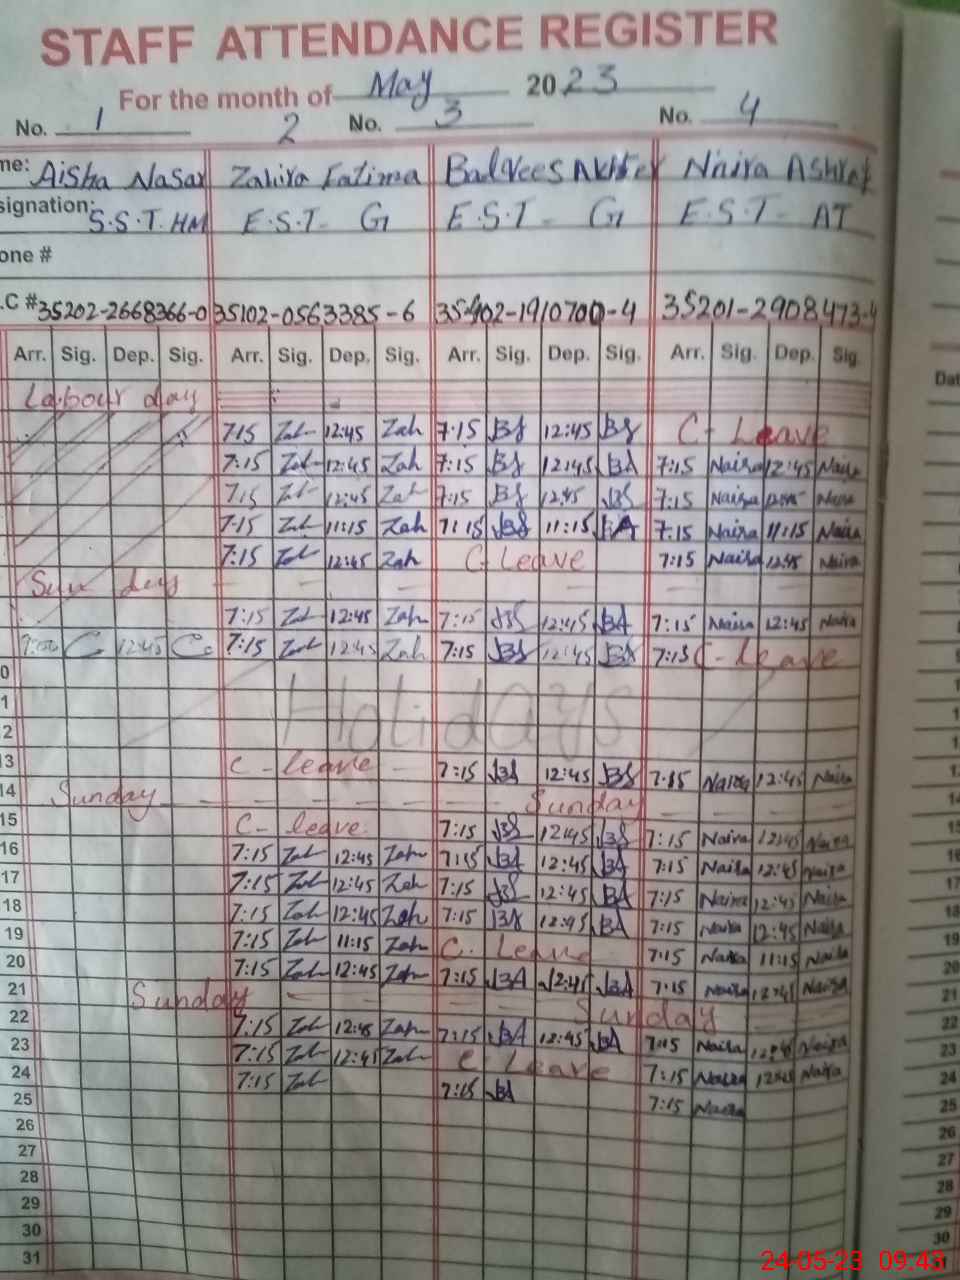 STAFF ATTENDANCE REGISTER
For the month of May 2023
No. 1 2 No. 3 No. 4
me: Aisha Nasar Zahira Fatima Akhter Naira Ashraf
signation: S.S.T. HM E.S.T- G E.S.T- G E.S.T- AT
one #
.C # 35202-2668366-0 35102-0563385-6 -1910700-4 35201-2908473-
Arr. Sig. Dep. Sig. Arr. Sig. Dep. Sig. Arr. Sig. Dep. Sig. Arr. Sig. Dep. Sig.
Labour day
7:15 Zah 12:45 Zah 7:15 BS 12:45 BS C- Leave
7:15 Zah 12:45 Zah 7:15 BS 12:45 BA 7:15 Naira 12:45 Naira
7:15 Zah 12:45 Zah 7:15 BS 12:45 BS 7:15 Naira 12:45 Naira
7:15 Zah 11:15 Zah 7:15 BS 11:15 BA 7:15 Naira 11:15 Naira
7:15 Zah 12:45 Zah C- Leave 7:15 Naira 12:45 Naira
Sunday
7:15 Zah 12:45 Zah 7:15 BS 12:45 BA 7:15 Naira 12:45 Naira
12:45 7:15 Zah 12:45 Zah 7:15 BS 12:45 BS 7:15 C- leave
0
1 Holidays
2
3 C- leave 7:15 BS 12:45 BS 7:15 Naira 12:45 Naira
14 Sunday Sunday
15 C- leave 7:15 BS 12:45 BS 7:15 Naira 12:45 Naira
16 7:15 Zah 12:45 Zah 7:15 BA 12:45 BA 7:15 Naira 12:45 Naira
17 7:15 Zah 12:45 Zah 7:15 BS 12:45 BA 7:15 Naira 12:45 Naira
18 7:15 Zah 12:45 Zah 7:15 BS 12:45 BA 7:15 Naira 12:45 Naira
19 7:15 Zah 11:15 Zah C- Leave 7:15 Naira 11:15 Naira
20 7:15 Zah 12:45 Zah 7:15 BA 12:45 BA 7:15 Naira 12:45 Naira
21 Sunday Sunday
22 7:15 Zah 12:45 Zah 7:15 BA 12:45 BA 7:15 Naira 12:45 Naira
23 7:15 Zah 12:45 Zah C Leave 7:15 Naira 12:45 Naira
24 7:15 Zah 7:15 BA 7:15 Naira
25
26
27
28
29
30
31
Dat
14
15
16
17
18
19
20
21
22
23
24
25
26
27
28
29
30
24-05-23 09:43